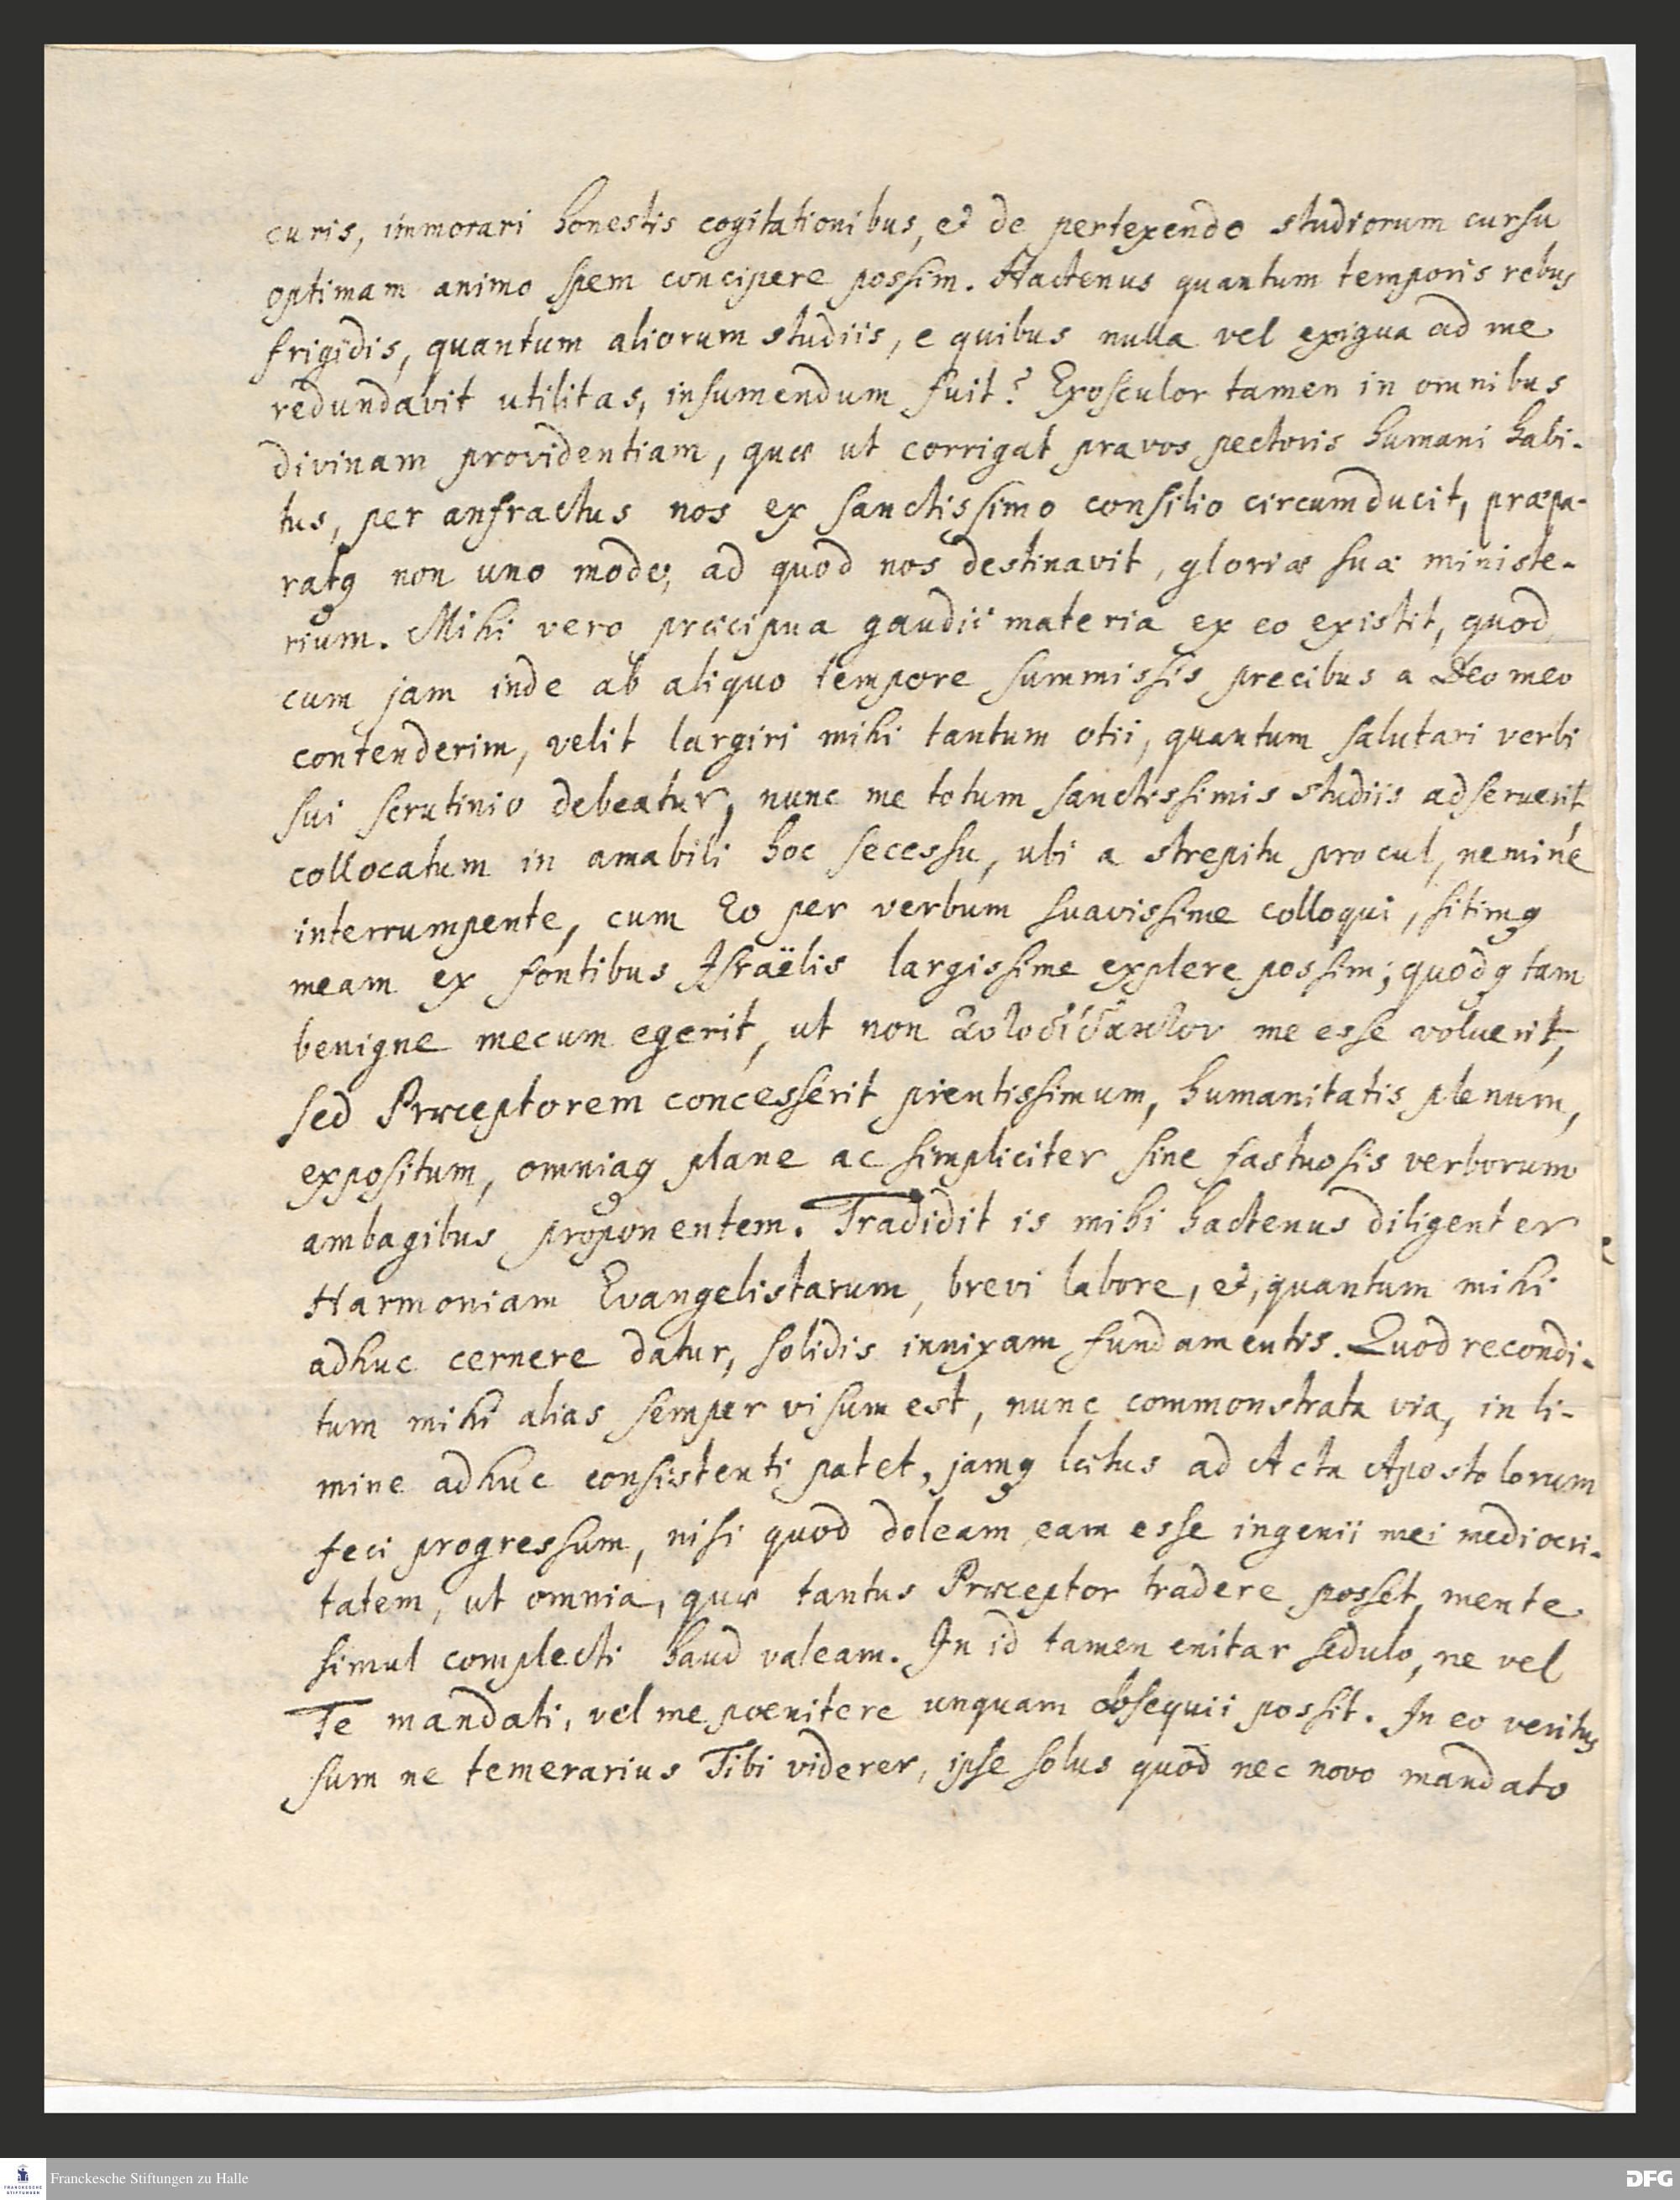 curis, immorari honestis cogitationibus, et de pertexendo studiorum cursu
optimam animo spem concipere possim. Hactenus quantum temporis rebus
frigidis, quantum aliorum studiis, e quibus nulla vel exigua ad me
redundavit utilitas, insumendum fuit? Exosculor tamen in omnibus
divinam providentiam, quæ ut corrigat pravos pectoris humani habi-
tus, per anfractus nos ex sanctissimo consilio circumducit, præpa-
ratq non uno modo, ad quod nos destinavit, gloriæ suæ ministe-
rium. Mihi vero præcipua gaudii materia ex eo existit, quod
cum jam inde ab aliquo tempore summissis precibus a Deo meo
contenderim, velit largiri mihi tantum otii, quantum salutari verbi
sui scrutinio debeatur, nunc me totum sanctissimis studiis adseruerit,
collocatum in amabili hoc secessu, ubi a strepitu procul, neminé
interrumpente, cum Eo per verbum suavissime colloqui, sitimq
meam ex fontibus Israëlis largissime explere possim; quodq tam
benigne mecum egerit, ut non me esse voluerit,
sed Præceptorem concesserit pientissimum, humanitatis plenum,
expositum, omniaq plane ac simpliciter sine fastuosis verborum
ambagibus proponentem. Tradidit is mihi hactenus diligenter
Harmoniam Evangelistarum, brevi labore, et, quantum mihi
adhuc cernere datur, solidis innixam fundamentis. Quod recondi-
tum mihi alias semper visum est, nunc commonstrata via, in li-
mine adhuc consistenti patet, jamq lætus ad Acta Apostolorum
feci progressum, nisi quod doleam eam esse ingenii mei mediocri-
tatem, ut omnia, quæ tantus Præceptor tradere posset, mente
simul complecti haud valeam. In id tamen enitar sedulo, ne vel
Te mandati, vel me poenitere unquam obsequii possit. In eo veritus
sum ne temerarius Tibi viderer, ipse solus quod nec novo mandato
Franckesche Stiftungen zu Halle
DFG